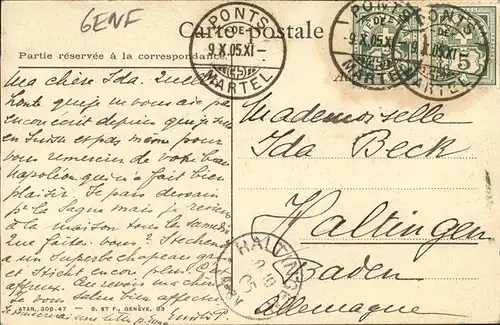 GENF
Carte postale
PONTS
-DE-
-9.X.05.XI-
MARTEL
PONTS
-DE-
-9.X.05.XI
MARTEL
PONTS
DE
9.X.05.XI
MARTEL
5
Partie réservée à la correspondance.
Ma chère Ida. Quelle
honte que je ne vous aie pas
encore écrit depuis que je suis
en Suisse et pas même pour
vous remercier de votre beau
napoléon qui m'a fait bien
plaisir. Je pars demain
pr la Sagne mais je reviens
à la maison tous les samedis
Que faites vous?
a un superbe chapeau
et encore plus
affreux. Au revoir ma chère
je vous salue bien affect
Mademoiselle
Ida Beck
Haltingen
Baden
Allemagne
HALTINGEN
10
05
ATAR, 309.47 — B. ET F., GENÈVE, 93